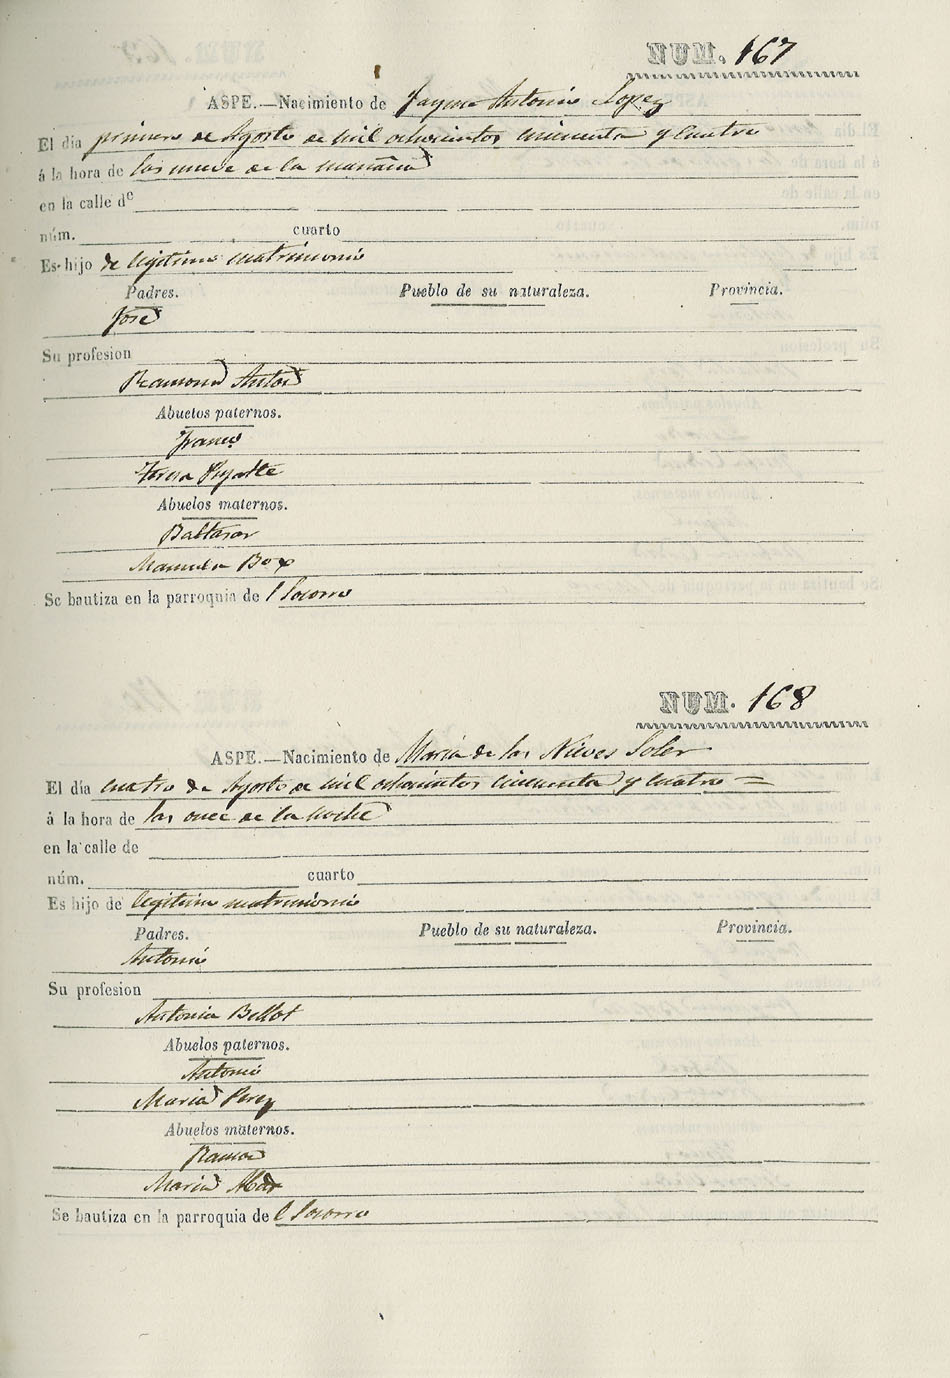 NUM. 167
ASPE.—Nacimiento de Jayme Antonio Lopez
El día primero de Agosto de mil ochocientos cincuenta y cuatro
á la hora de las nueve de la mañana
en la calle de
núm. cuarto
Es hijo de legitimo matrimonio
Padres. Pueblo de su naturaleza. Provincia.
José
Su profesion
Ramona Anton
Abuelos paternos.
Teresa
Abuelos maternos.
Baltasar
Manuela Box
Se bautiza en la parroquia del Socorro
NUM. 168
ASPE.—Nacimiento de Maria de las Nieves Soler
El día cuatro de Agosto de mil ochocientos cincuenta y cuatro =
á la hora de las once de la noche
en la calle de
núm. cuarto
Es hijo de legitimo matrimonio
Padres. Pueblo de su naturaleza. Provincia.
Antonio
Su profesion
Antonia Bellot
Abuelos paternos.
Antonio
Maria Perez
Abuelos maternos.
Ramon
Maria
Se bautiza en la parroquia de l Socorro